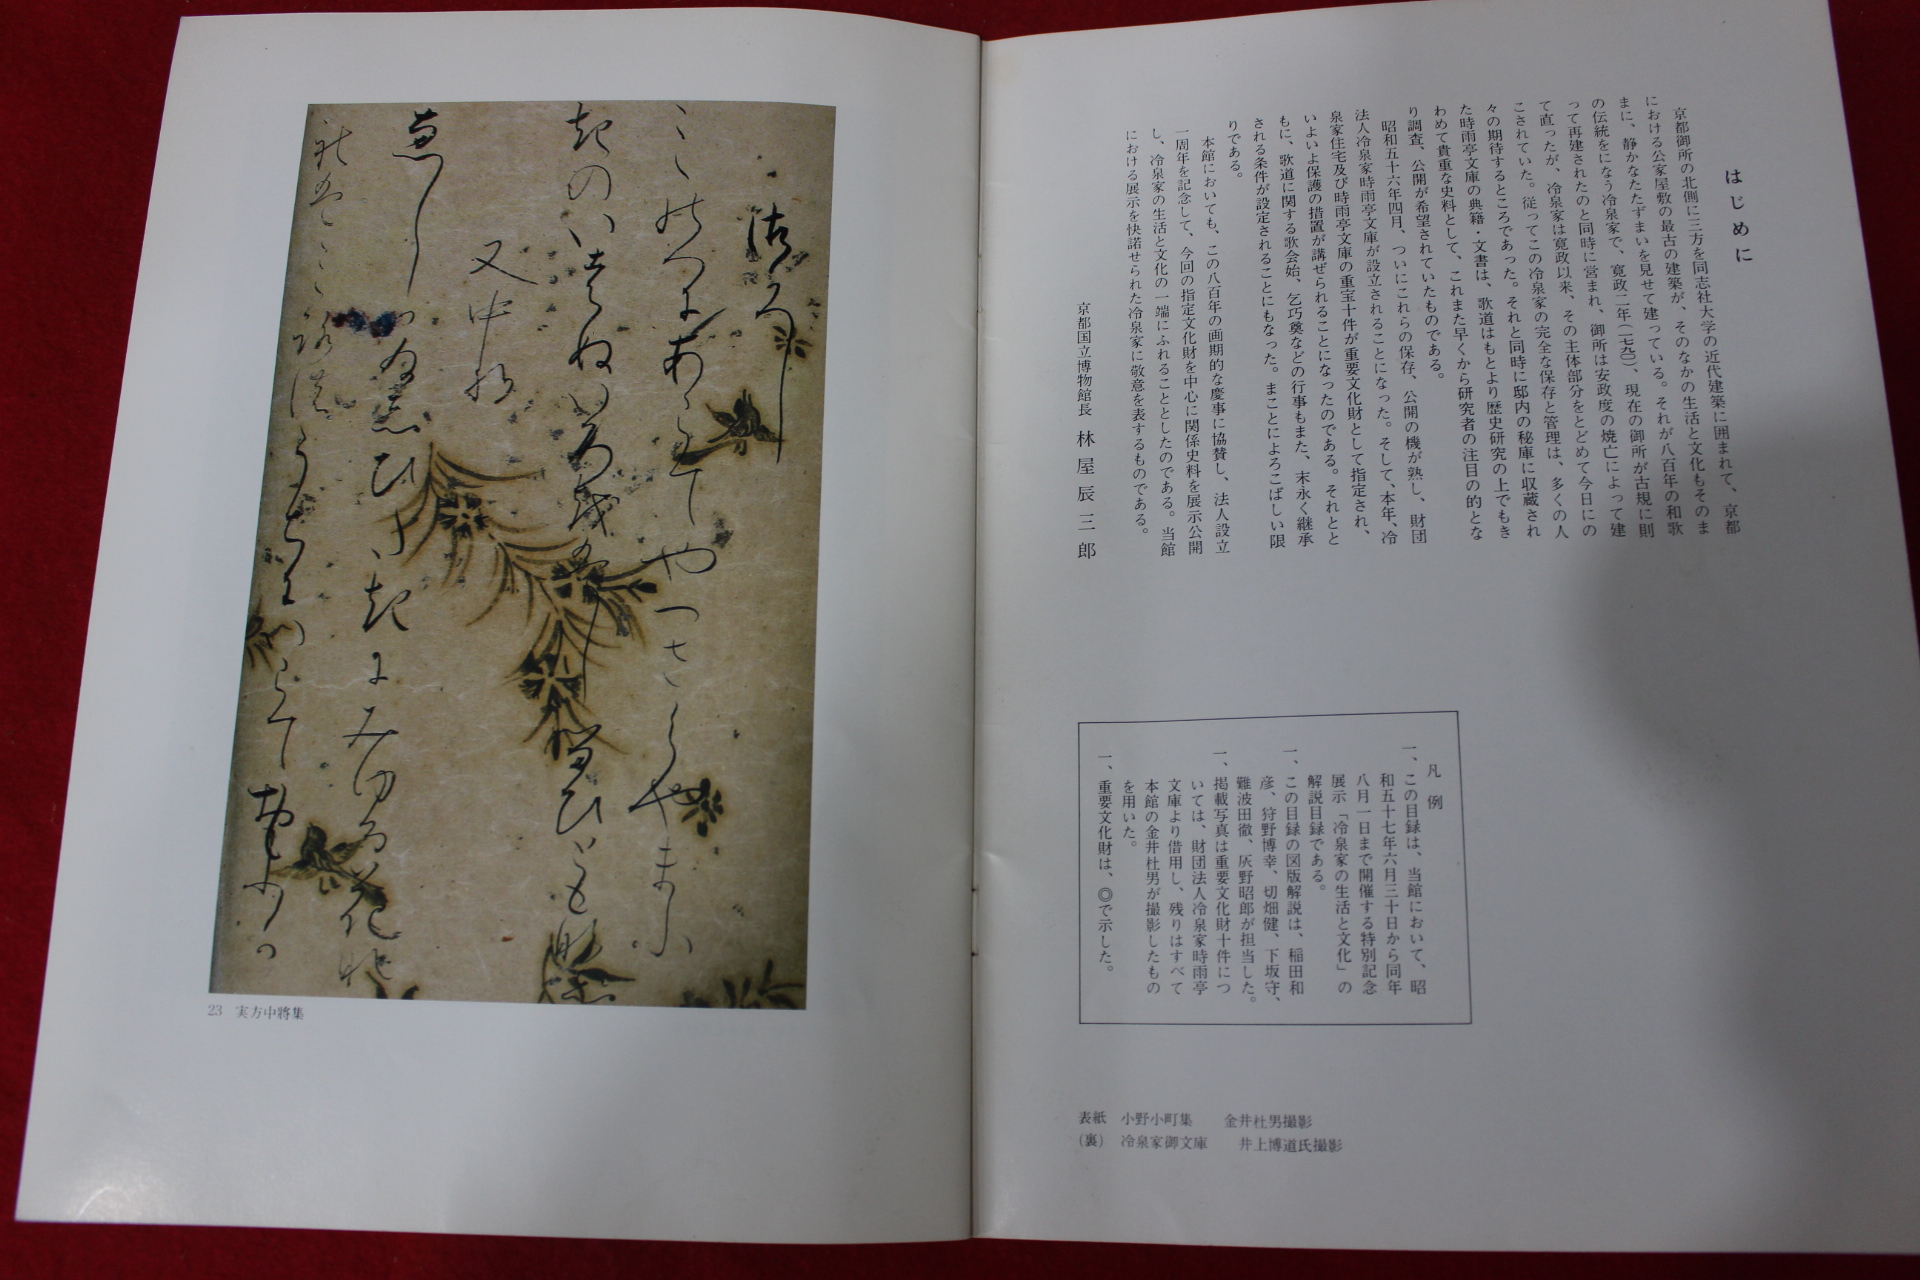 はじめに
京都御所の北側に三方を同志社大学の近代建築に囲まれて、京都
における公家屋敷の最古の建築が、そのなかの生活と文化もそのま
まに、静かなたたずまいを見せて建っている。それが八百年の和歌
の伝統をになう冷泉家で、寛政二年(一七九〇)、現在の御所が古規に則
って再建されたのと同時に営まれ、御所は安政度の焼亡によって建
て直ったが、冷泉家は寛政以来、その主体部分をとどめて今日にの
こされていた。従ってこの冷泉家の完全な保存と管理は、多くの人
々の期待するところであった。それと同時に邸内の秘庫に収蔵され
た時雨亭文庫の典籍・文書は、歌道はもとより歴史研究の上でもき
わめて貴重な史料として、これまた早くから研究者の注目の的とな
り調査、公開が希望されていたものである。
昭和五十六年四月、ついにこれらの保存、公開の機が熟し、財団
法人冷泉家時雨亭文庫が設立されることになった。そして、本年、冷
泉家住宅及び時雨亭文庫の重宝十件が重要文化財として指定され、
いよいよ保護の措置が講ぜられることになったのである。それとと
もに、歌道に関する歌会始、乞巧奠などの行事もまた、末永く継承
される条件が設定されることにもなった。まことによろこばしい限
りである。
本館においても、この八百年の画期的な慶事に協賛し、法人設立
一周年を記念して、今回の指定文化財を中心に関係史料を展示公開
し、冷泉家の生活と文化の一端にふれることとしたのである。当館
における展示を快諾せられた冷泉家に敬意を表するものである。
京都国立博物館長 林屋辰三郎
凡例
一、この目録は、当館において、昭
和五十七年六月三十日から同年
八月一日まで開催する特別記念
展示「冷泉家の生活と文化」の
解説目録である。
一、この目録の図版解説は、稲田和
彦、狩野博幸、切畑健、下坂守、
難波田徹、灰野昭郎が担当した。
一、掲載写真は重要文化財十件につ
いては、財団法人冷泉家時雨亭
文庫より借用し、残りはすべて
本館の金井杜男が撮影したもの
を用いた。
一、重要文化財は、◎で示した。
表紙 小野小町集 金井杜男撮影
(裏) 冷泉家御文庫 井上博道氏撮影
又中将
23 実方中將集